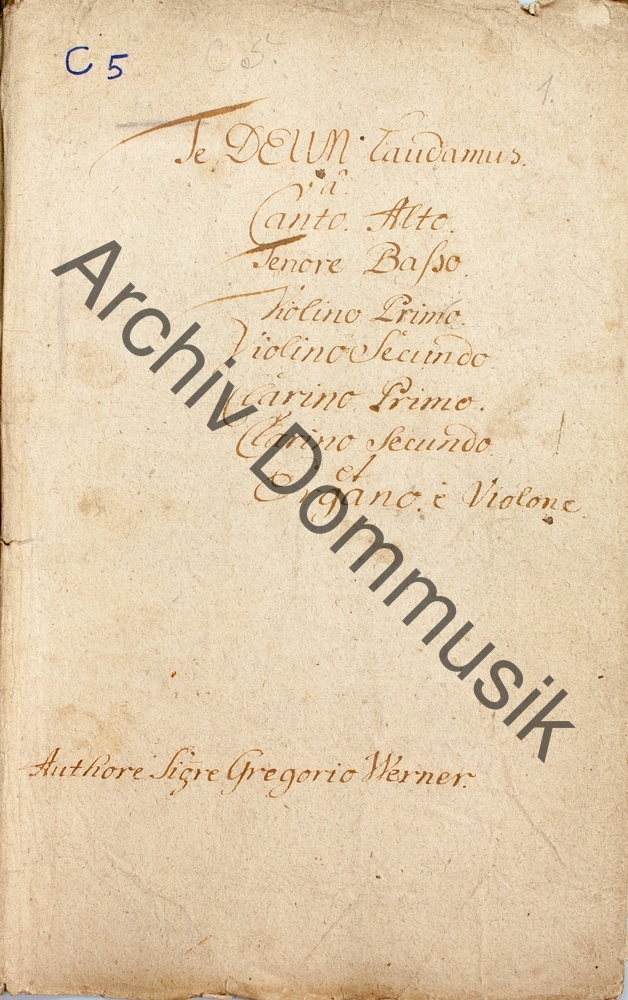 C 5 C 5.
1.
Te DEUM Laudamus.
â
Canto. Alto.
Tenore Baſso.
Violino Primo.
Violino Secundo
Clarino Primo.
Clarino Secundo
et
Organo. è Violone.
Authore Sigre Gregorio Werner.
Archiv Dommusik